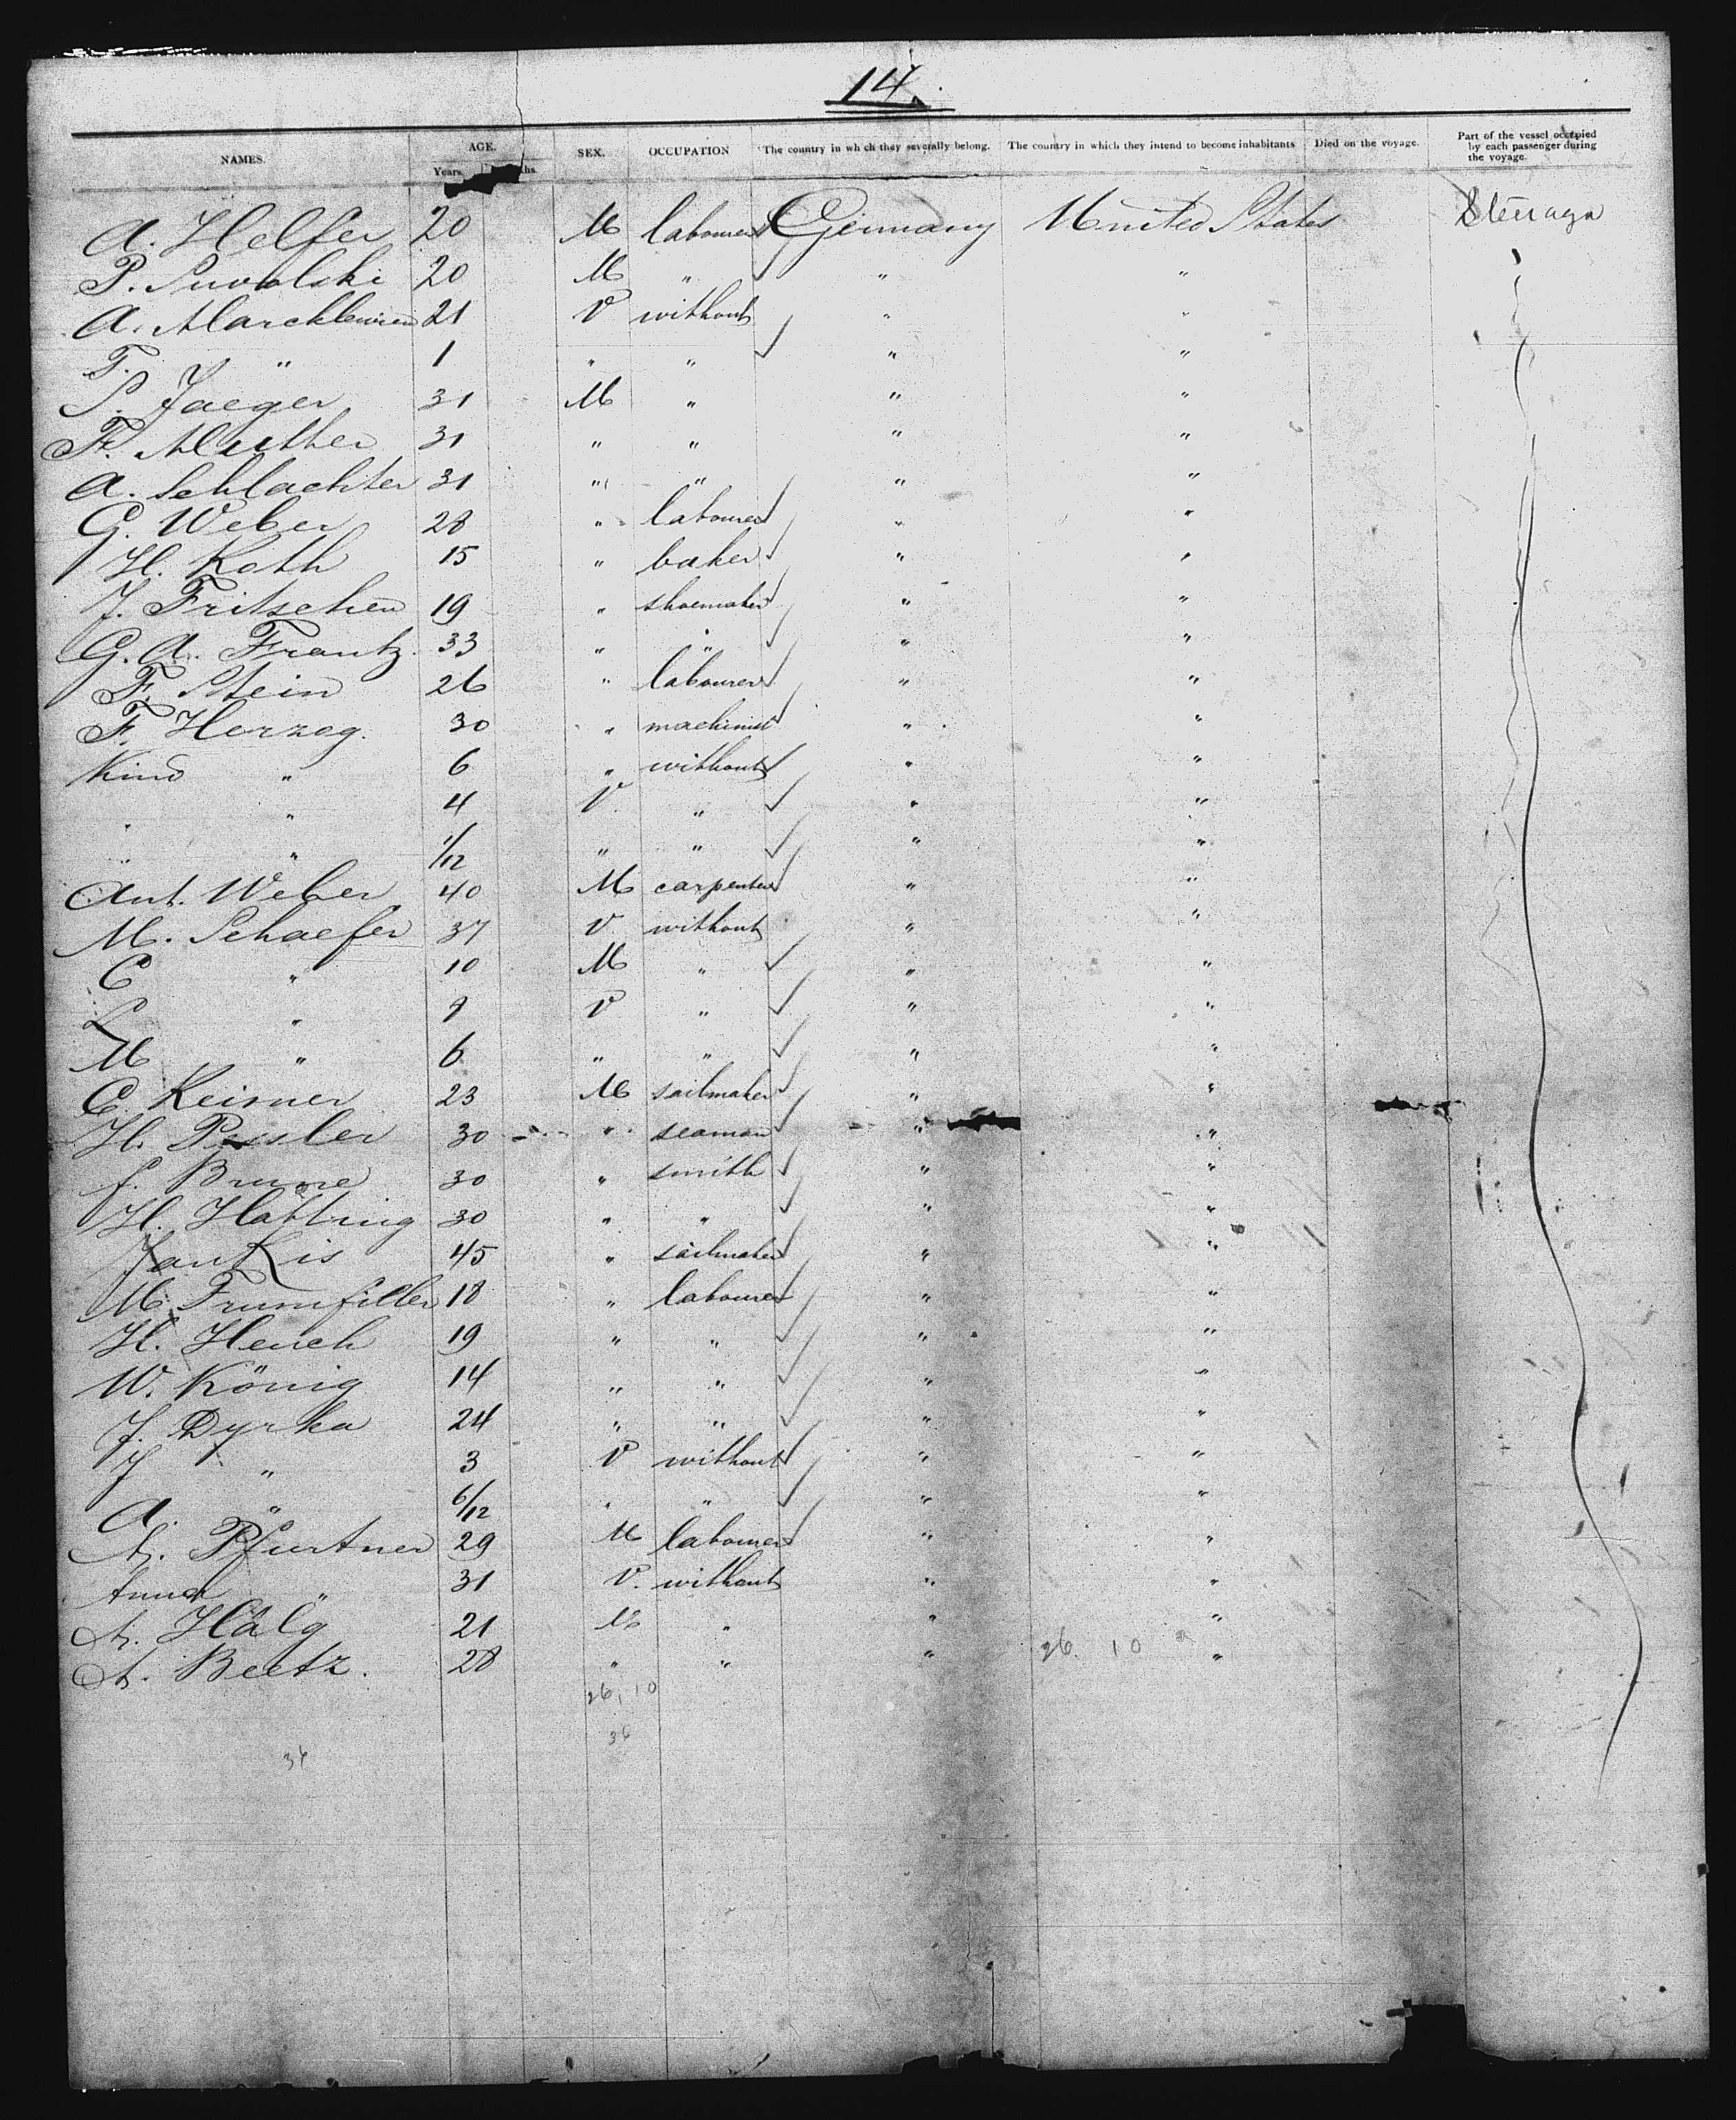 14.
NAMES. AGE. Years. SEX. OCCUPATION The country in wh ch they severally belong. The country in which they intend to become inhabitants Died on the voyage. Part of the vessel occupied by each passenger during the voyage.
A. Helfer 20 M labourer Germany United States Steerage
P. Suwolski 20 M " " "
A. 21 V without " "
F. " 1 " " " "
S. Jaeger 31 M " " "
Fr. Muther 31 " " " "
A. Schlachter 31 " " " "
G. Weber 28 " labourer " "
H. Koth 15 " baker " "
J. Fritschen 19 " shoemaker " "
G. A. Frantz. 33 " " " "
F. Stein 26 " labourer " "
F. Herzog. 30 " machinist " "
Kind " 6 " without " "
" " 4 V. " " "
" " 1/12 " " " "
Ant. Weber 40 M carpenter " "
M. Schaefer 37 V without " "
C " 10 M " " "
L " 9 V " " "
M " 6 " " " "
C. Keisner 23 M sailmaker " "
H. 30 " seaman " "
J. Brune 30 " smith " "
H. Hatting 30 " " " "
Jan Kis 45 " sailmaker " "
M. Frumfiller 18 " labourer " "
H. Hench 19 " " " "
W. König 14 " " " "
J. Dyrka 24 " " " "
J " 3 V without " "
A. " 6/12 " " " "
A. Pfurtner 29 M labourer " "
Anna " 31 V. without " "
A. Hälg 21 M " " "
A. Beetz. 28 " " " 26. 10 "
26, 10
36
36